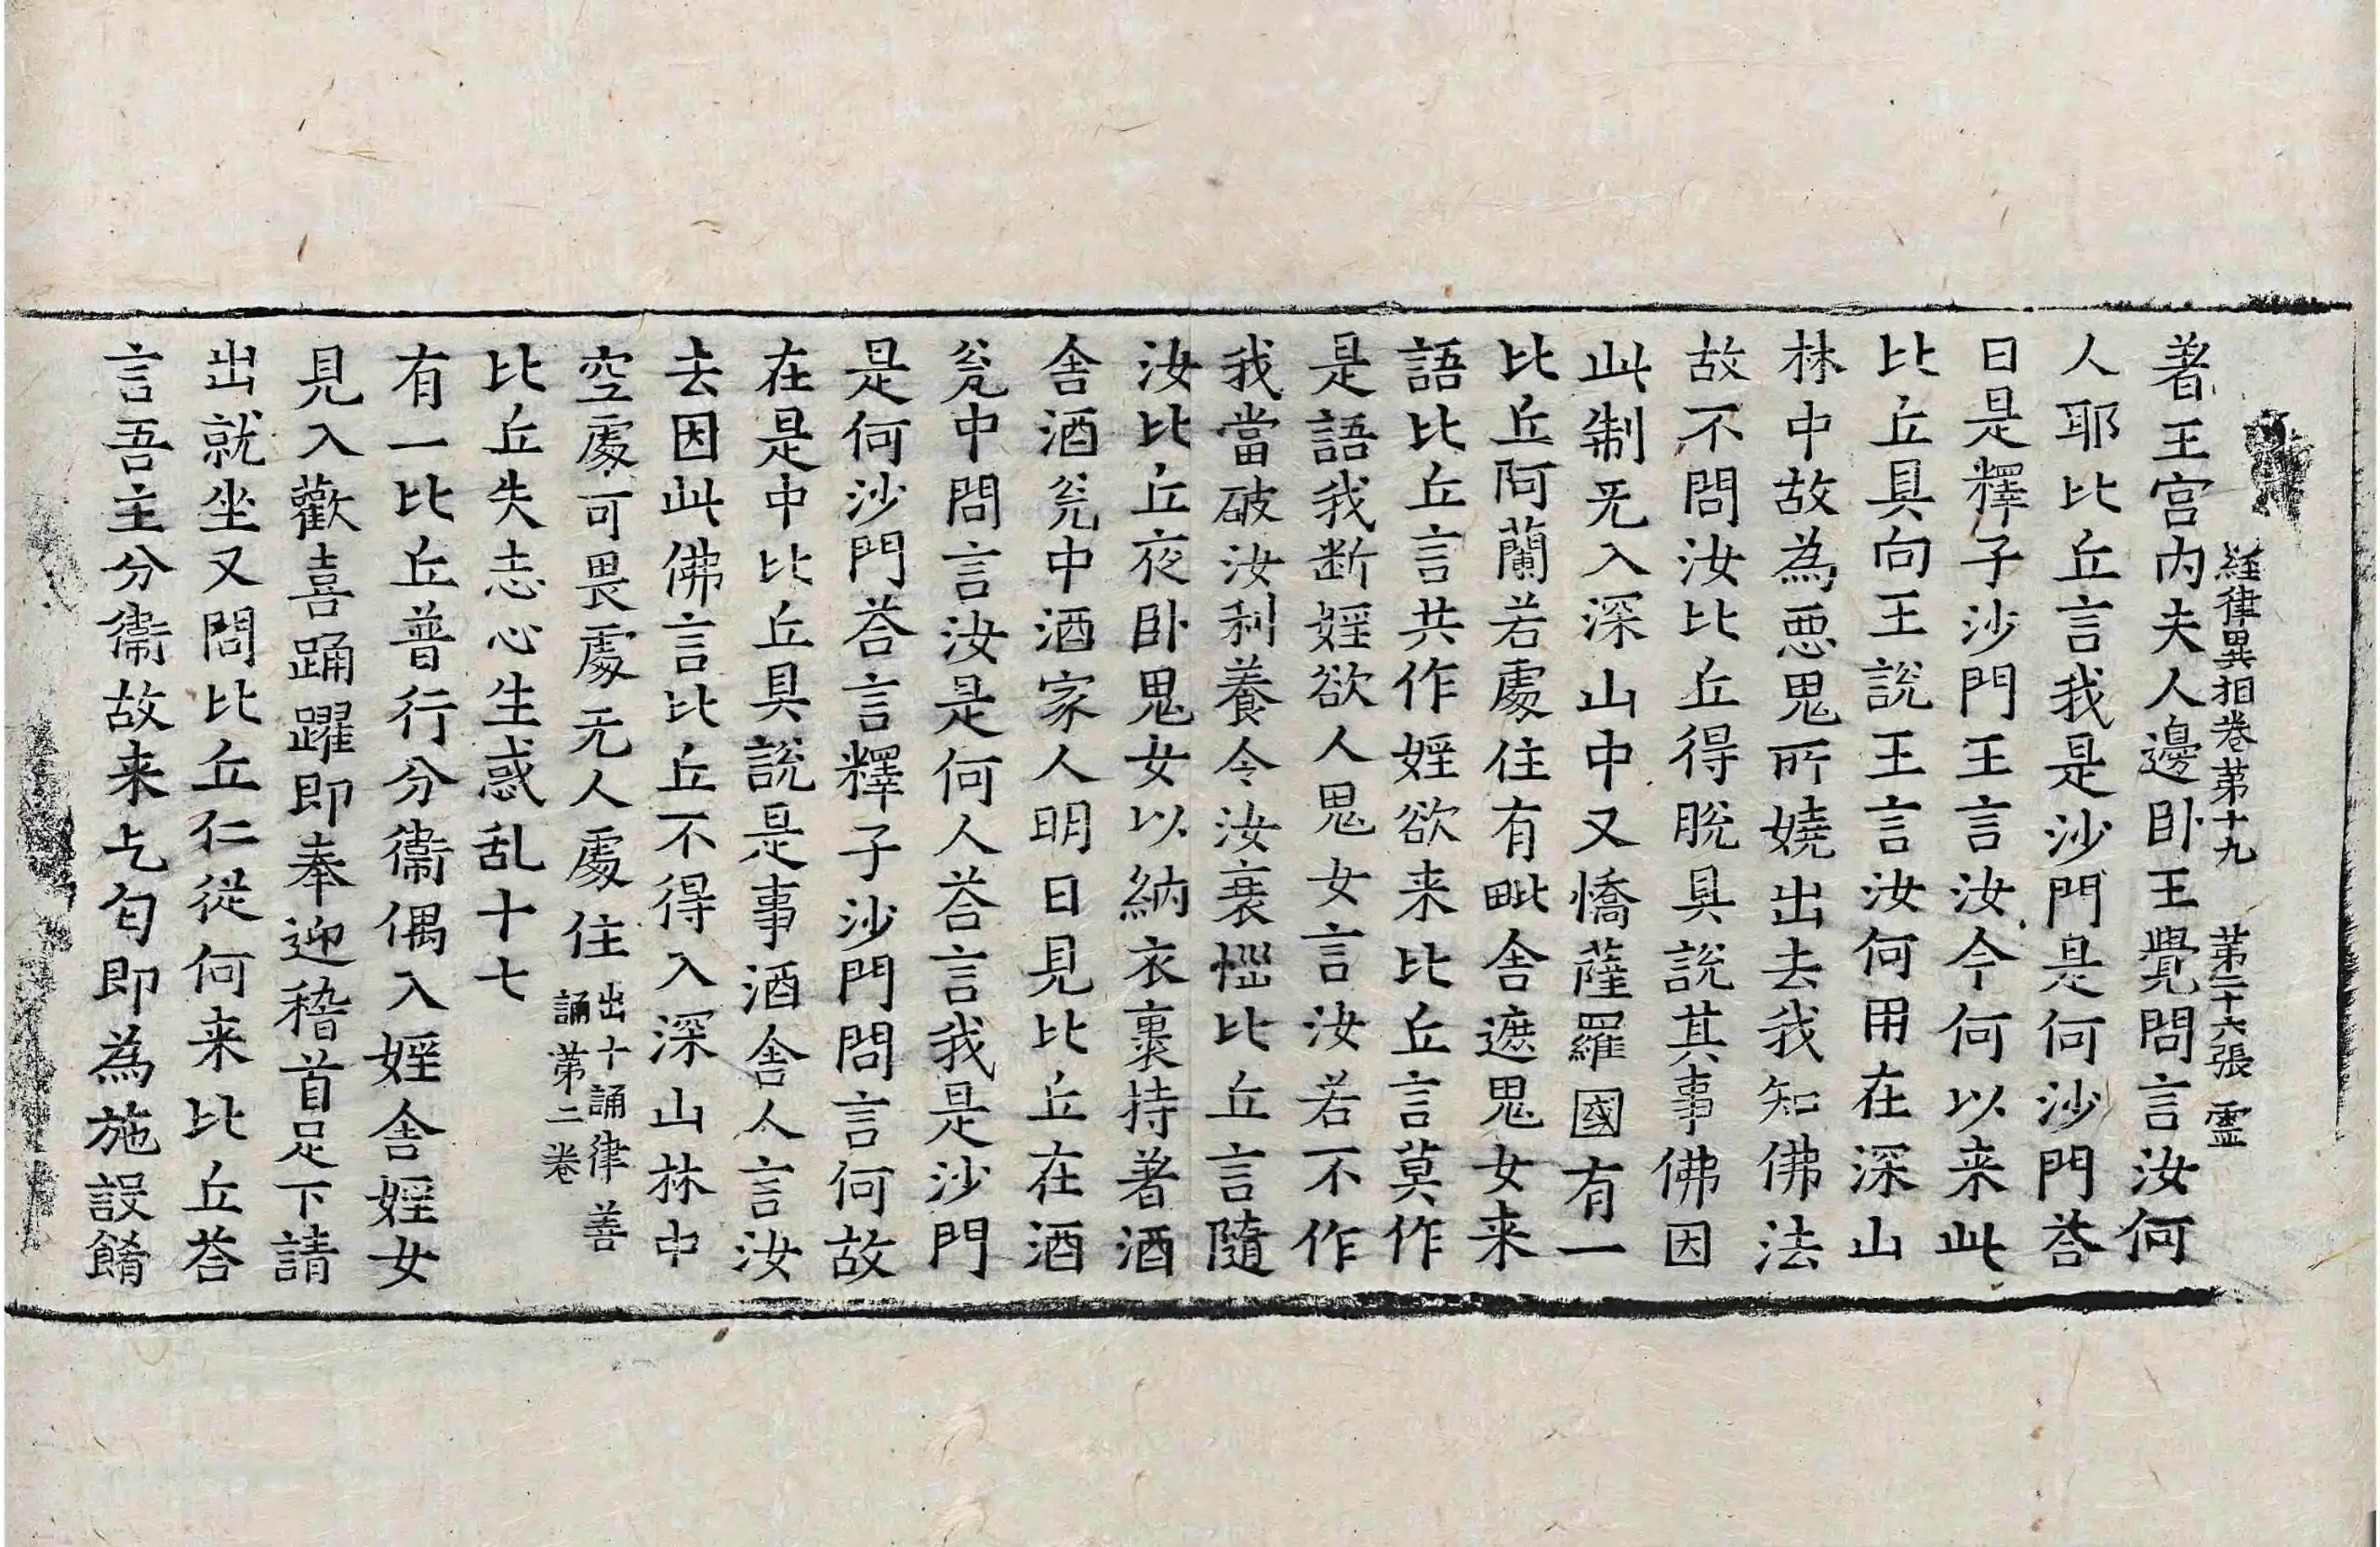 経律異相卷苐十九　苐二十六張　霊
著王宫内夫人邊卧王覺問言汝何
人耶比丘言我是沙門是何沙門荅
曰是釋子沙門王言汝今何以来此
比丘具向王説王言汝何用在深山
林中故為惡鬼所嬈出去我知佛法
故不問汝比丘得脫具說其事佛因
此制无入深山中又憍薩羅國有一
比丘阿蘭若處住有毗舍遮鬼女来
語比丘言共作婬欲来比丘言莫作
是語我断婬欲人鬼女言汝若不作
我當破汝利養令汝衰惱比丘言隨
汝比丘夜卧鬼女以納衣裹持著酒
舍酒瓮中酒家人明日見比丘在酒
瓮中問言汝是何人荅言我是沙門
是何沙門荅言釋子沙門問言何故
在是中比丘具說是事酒舍人言汝
去因此佛言比丘不得入深山林中
空處可畏處无人處住出十誦律善誦苐二卷
比丘失志心生惑乱十七
有一比丘普行分衞偶入婬舍婬女
見入歡喜踊躍即奉迎稽首足下請
出就坐又問比丘仁從何来比丘荅
言吾主分衞故来乞匂即為施設餚